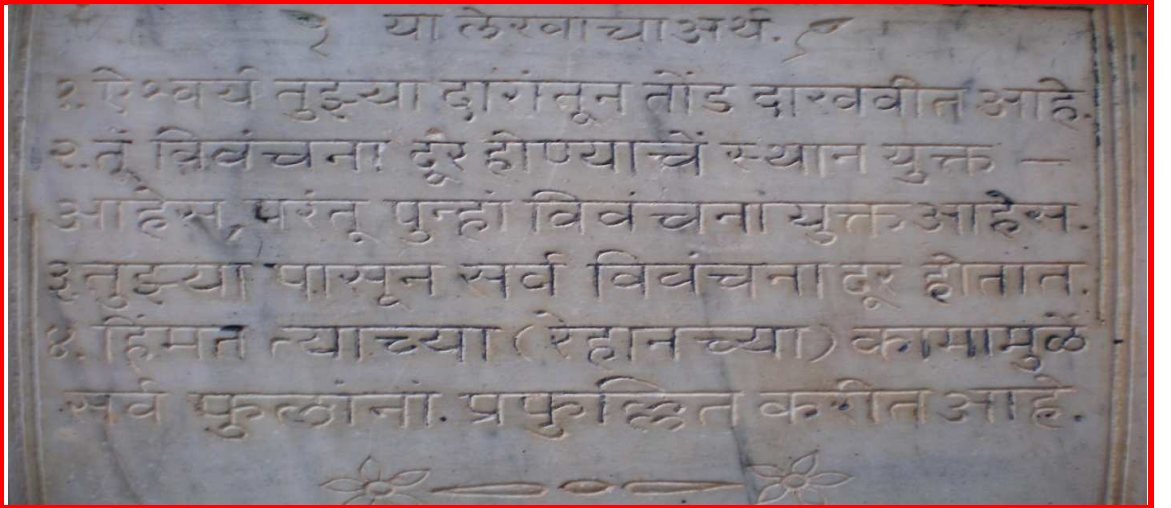 या लेखाचा अर्थ.
१. ऐश्वर्य तुझ्या दारांतून तोंड दाखवीत आहे.
२. तूं विवंचना दूर होण्याचें स्थान युक्त –
आहेस, परंतू पुन्हां विवंचना युक्त आहेस.
३ तुझ्या पासून सर्व विवंचना दूर होतात.
४. हिंमत त्याच्या (रेहानच्या) कामामुळें
सर्व फुलांनां. प्रफुल्लित करीत आहे.